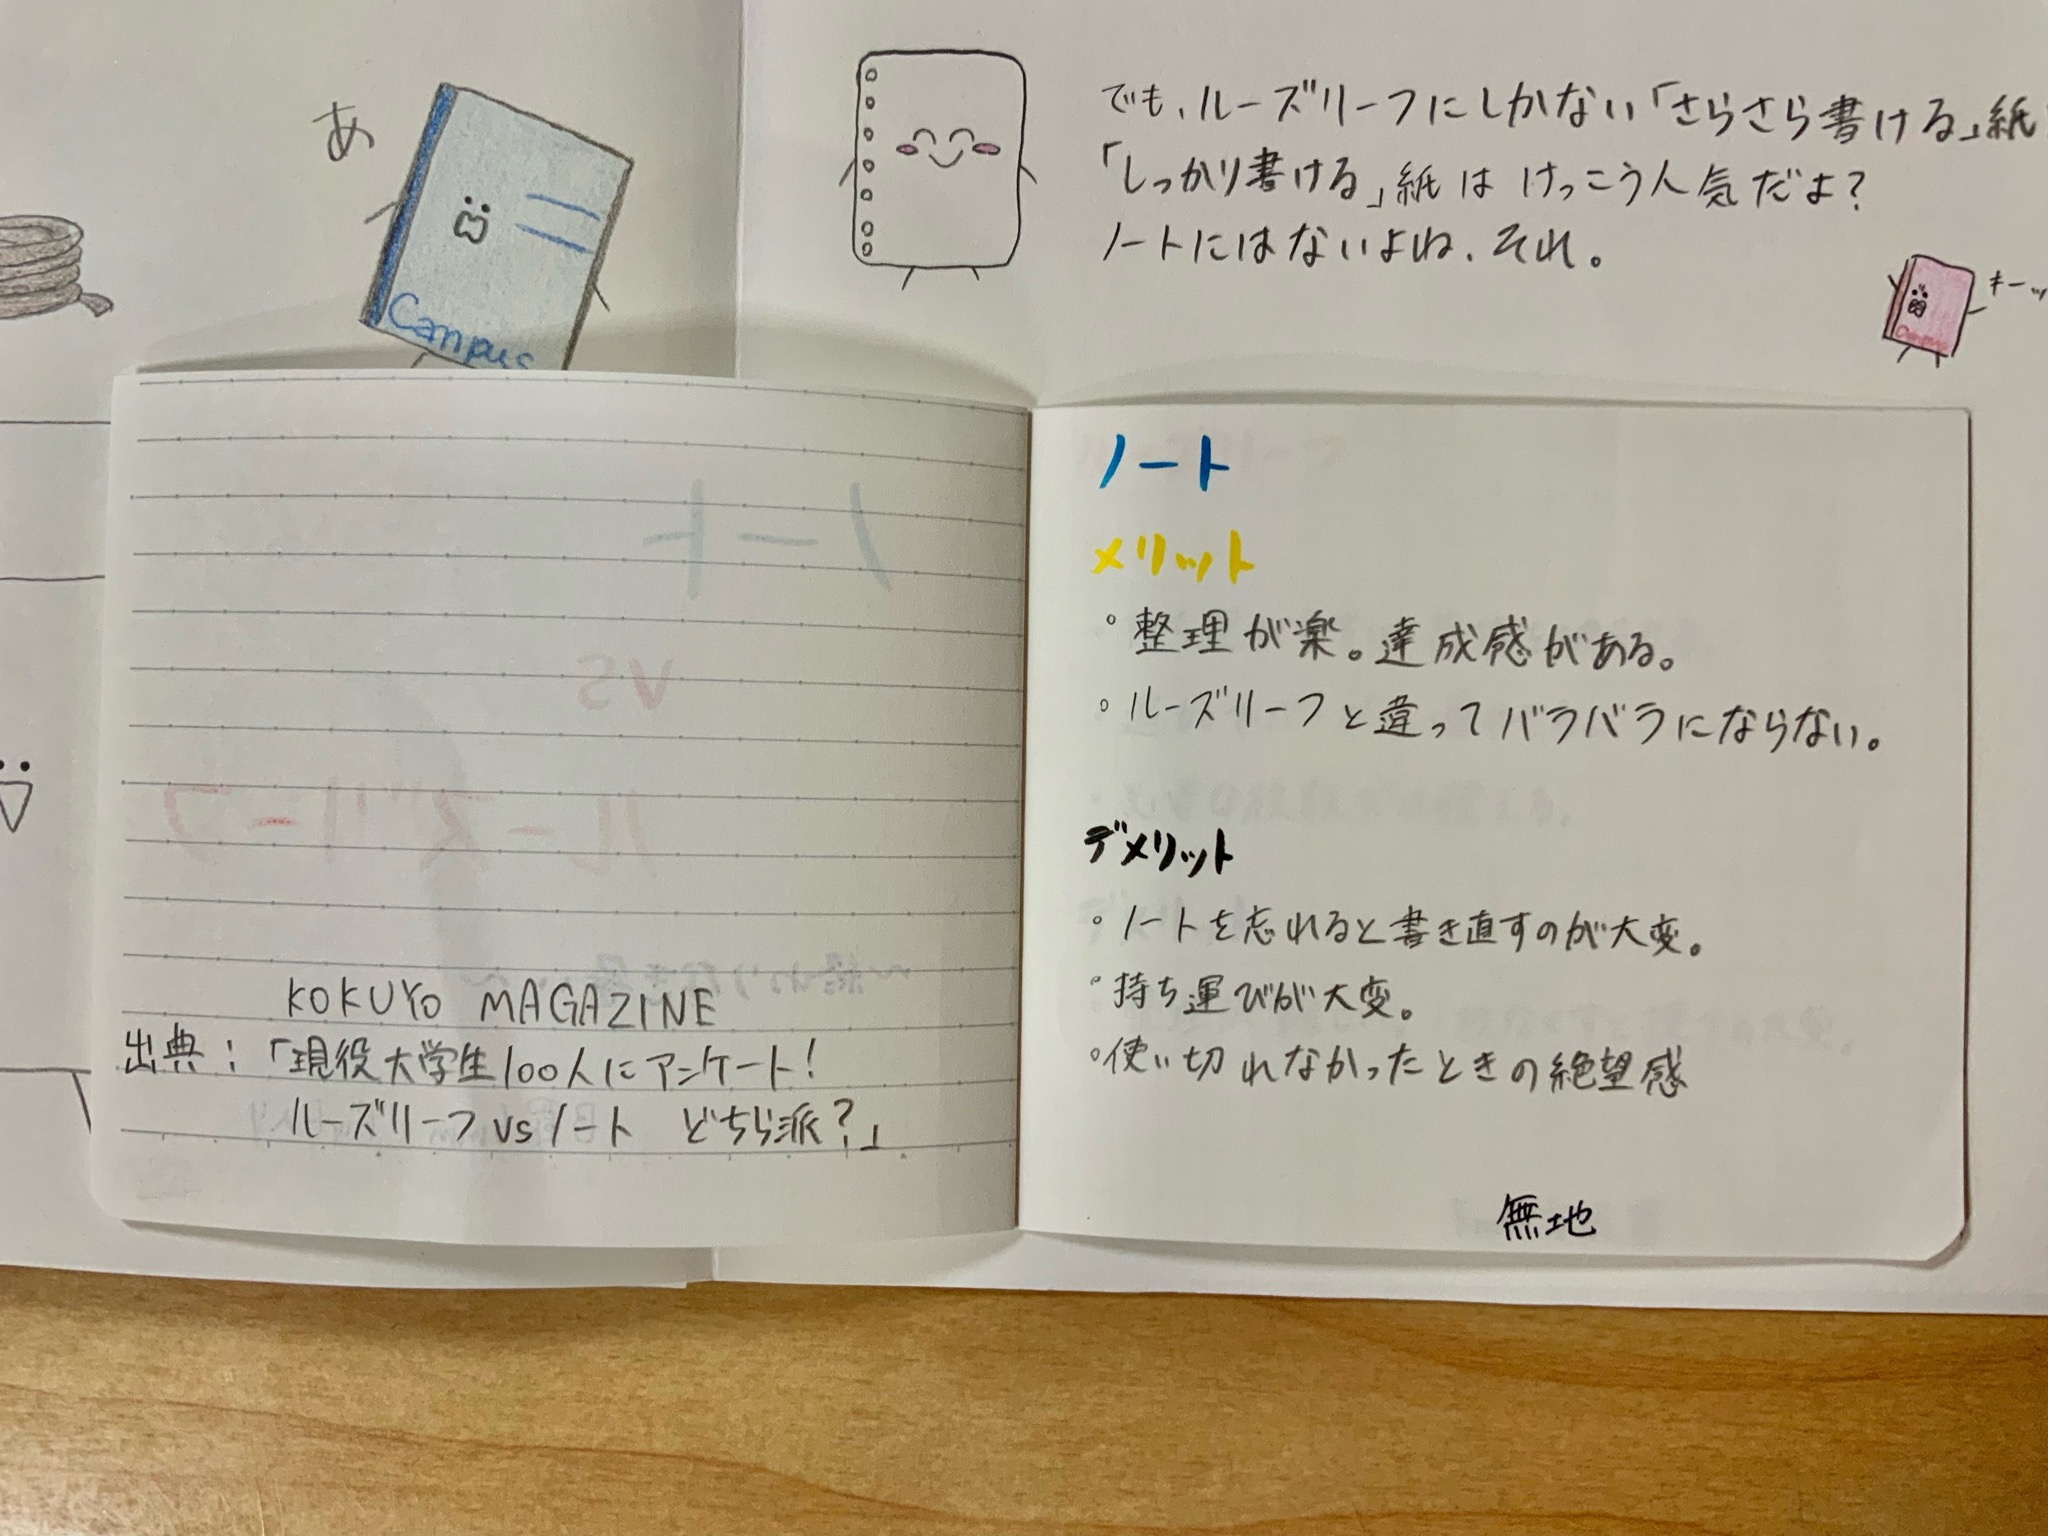 あ
Campus
でも、ルーズリーフにしかない「さらさら書ける」紙
「しっかり書ける」紙はけっこう人気だよ？
ノートにはないよね、それ。
キーッ
Campus
KOKUYO MAGAZINE
出典：「現役大学生100人にアンケート！
ルーズリーフvsノート どちら派？」
ノート
メリット
・整理が楽。達成感がある。
・ルーズリーフと違ってバラバラにならない。
デメリット
・ノートを忘れると書き直すのが大変。
・持ち運びが大変。
・使い切れなかったときの絶望感
無地
ノート
vs
ルーズリーフ